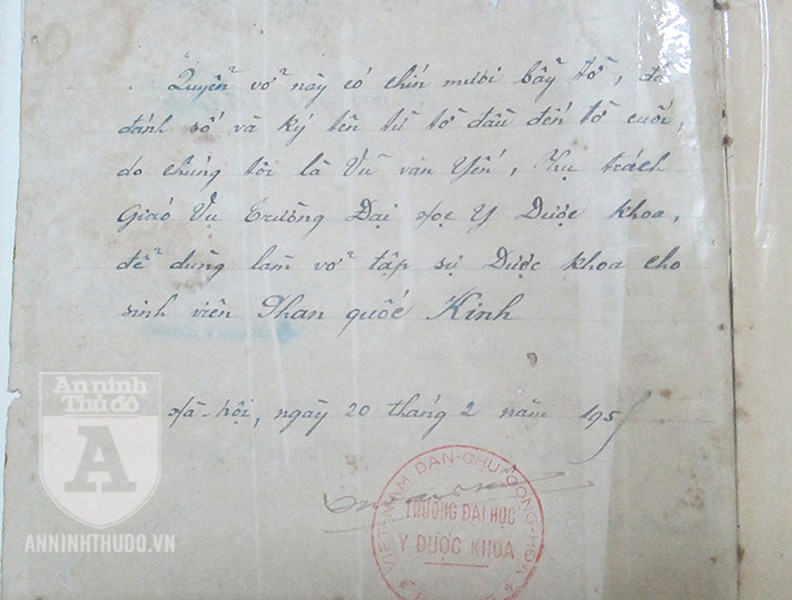 Quyển vở này có chín mươi bẩy tờ, đã
đánh số và ký tên từ tờ đầu đến tờ cuối,
do chúng tôi là Vũ văn Yến, Phụ trách
Giáo Vụ Trường Đại Học Y Dược khoa,
để dùng làm vở tập sự Dược khoa cho
sinh viên Phan quốc Kinh
Hà-Nội, ngày 20 tháng 2 năm 195
VIỆT-NAM DÂN-CHỦ CỘNG-HÒA
TRƯỜNG ĐẠI HỌC
Y DƯỢC KHOA
An ninh
Thủ đô
A
ANNINHTHUDO.VN